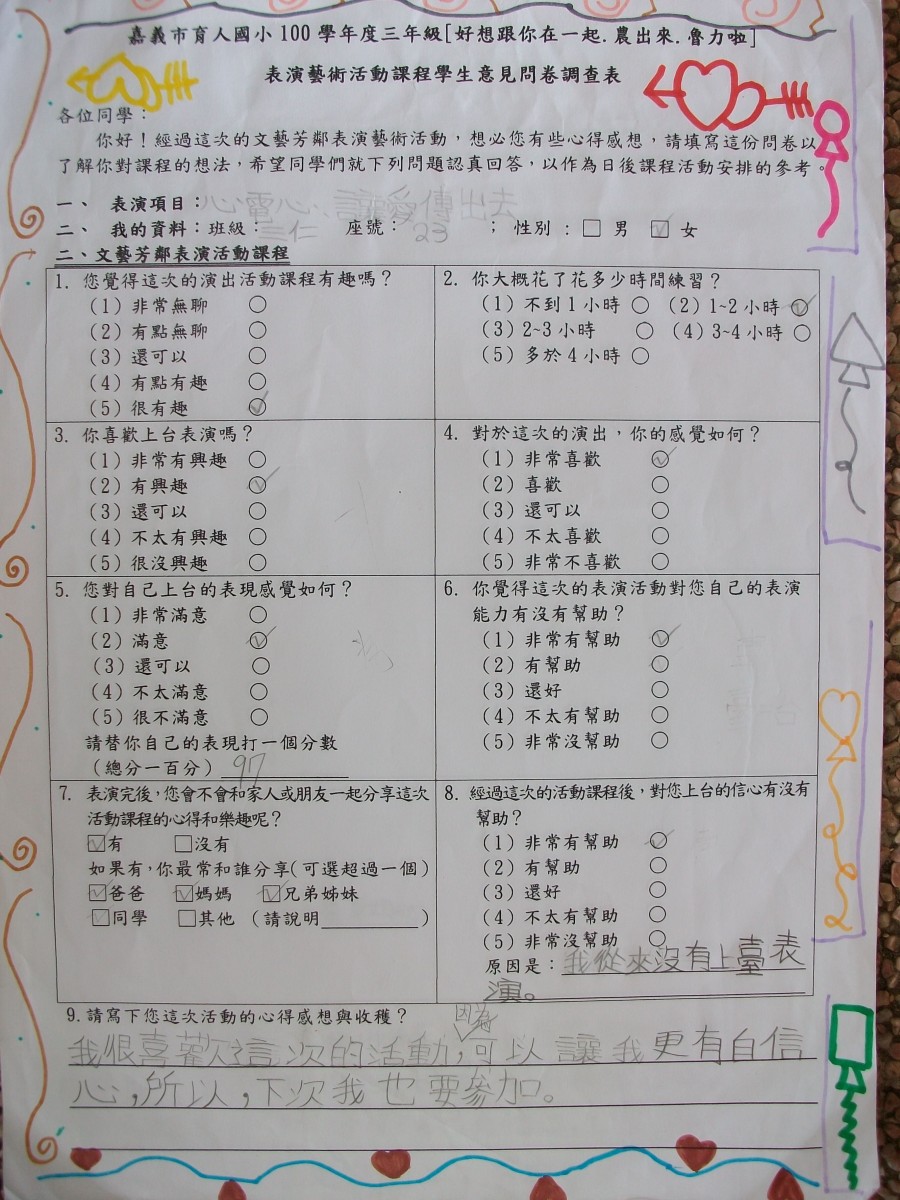 嘉義市育人國小100學年度三年級[好想跟你在一起.農出來.魯力啦]
表演藝術活動課程學生意見問卷調查表
各位同學：
你好！經過這次的文藝芳鄰表演藝術活動，想必您有些心得感想，請填寫這份問卷以
了解你對課程的想法，希望同學們就下列問題認真回答，以作為日後課程活動安排的參考。
一、 表演項目：心電心：讓愛傳出去
二、 我的資料：班級：三仁 座號：23 ；性別：□ 男 ☑ 女
二、文藝芳鄰表演活動課程
1. 您覺得這次的演出活動課程有趣嗎？
(1) 非常無聊 ○
(2) 有點無聊 ○
(3) 還可以 ○
(4) 有點有趣 ○
(5) 很有趣 ✓
2. 你大概花了花多少時間練習？
(1) 不到1小時 ○ (2) 1~2小時 ✓
(3) 2~3小時 ○ (4) 3~4小時 ○
(5) 多於4小時 ○
3. 你喜歡上台表演嗎？
(1) 非常有興趣 ○
(2) 有興趣 ✓
(3) 還可以 ○
(4) 不太有興趣 ○
(5) 很沒興趣 ○
4. 對於這次的演出，你的感覺如何？
(1) 非常喜歡 ✓
(2) 喜歡 ○
(3) 還可以 ○
(4) 不太喜歡 ○
(5) 非常不喜歡 ○
5. 您對自己上台的表現感覺如何？
(1) 非常滿意 ○
(2) 滿意 ✓
(3) 還可以 ○
(4) 不太滿意 ○
(5) 很不滿意 ○
請替你自己的表現打一個分數
(總分一百分) 97
6. 你覺得這次的表演活動對您自己的表演
能力有沒有幫助？
(1) 非常有幫助 ✓
(2) 有幫助 ○
(3) 還好 ○
(4) 不太有幫助 ○
(5) 非常沒幫助 ○
7. 表演完後，您會不會和家人或朋友一起分享這次
活動課程的心得和樂趣呢？
☑有 □沒有
如果有，你最常和誰分享(可選超過一個)
☑爸爸 ☑媽媽 ☑兄弟姊妹
☑同學 □其他 (請說明＿＿＿＿)
8. 經過這次的活動課程後，對您上台的信心有沒有
幫助？
(1) 非常有幫助 ✓
(2) 有幫助 ○
(3) 還好 ○
(4) 不太有幫助 ○
(5) 非常沒幫助 ○
原因是：我從來沒有上臺表
演。
9. 請寫下您這次活動的心得感想與收穫？
我很喜歡這次的活動，因為可以讓我更有自信
心，所以，下次我也要參加。